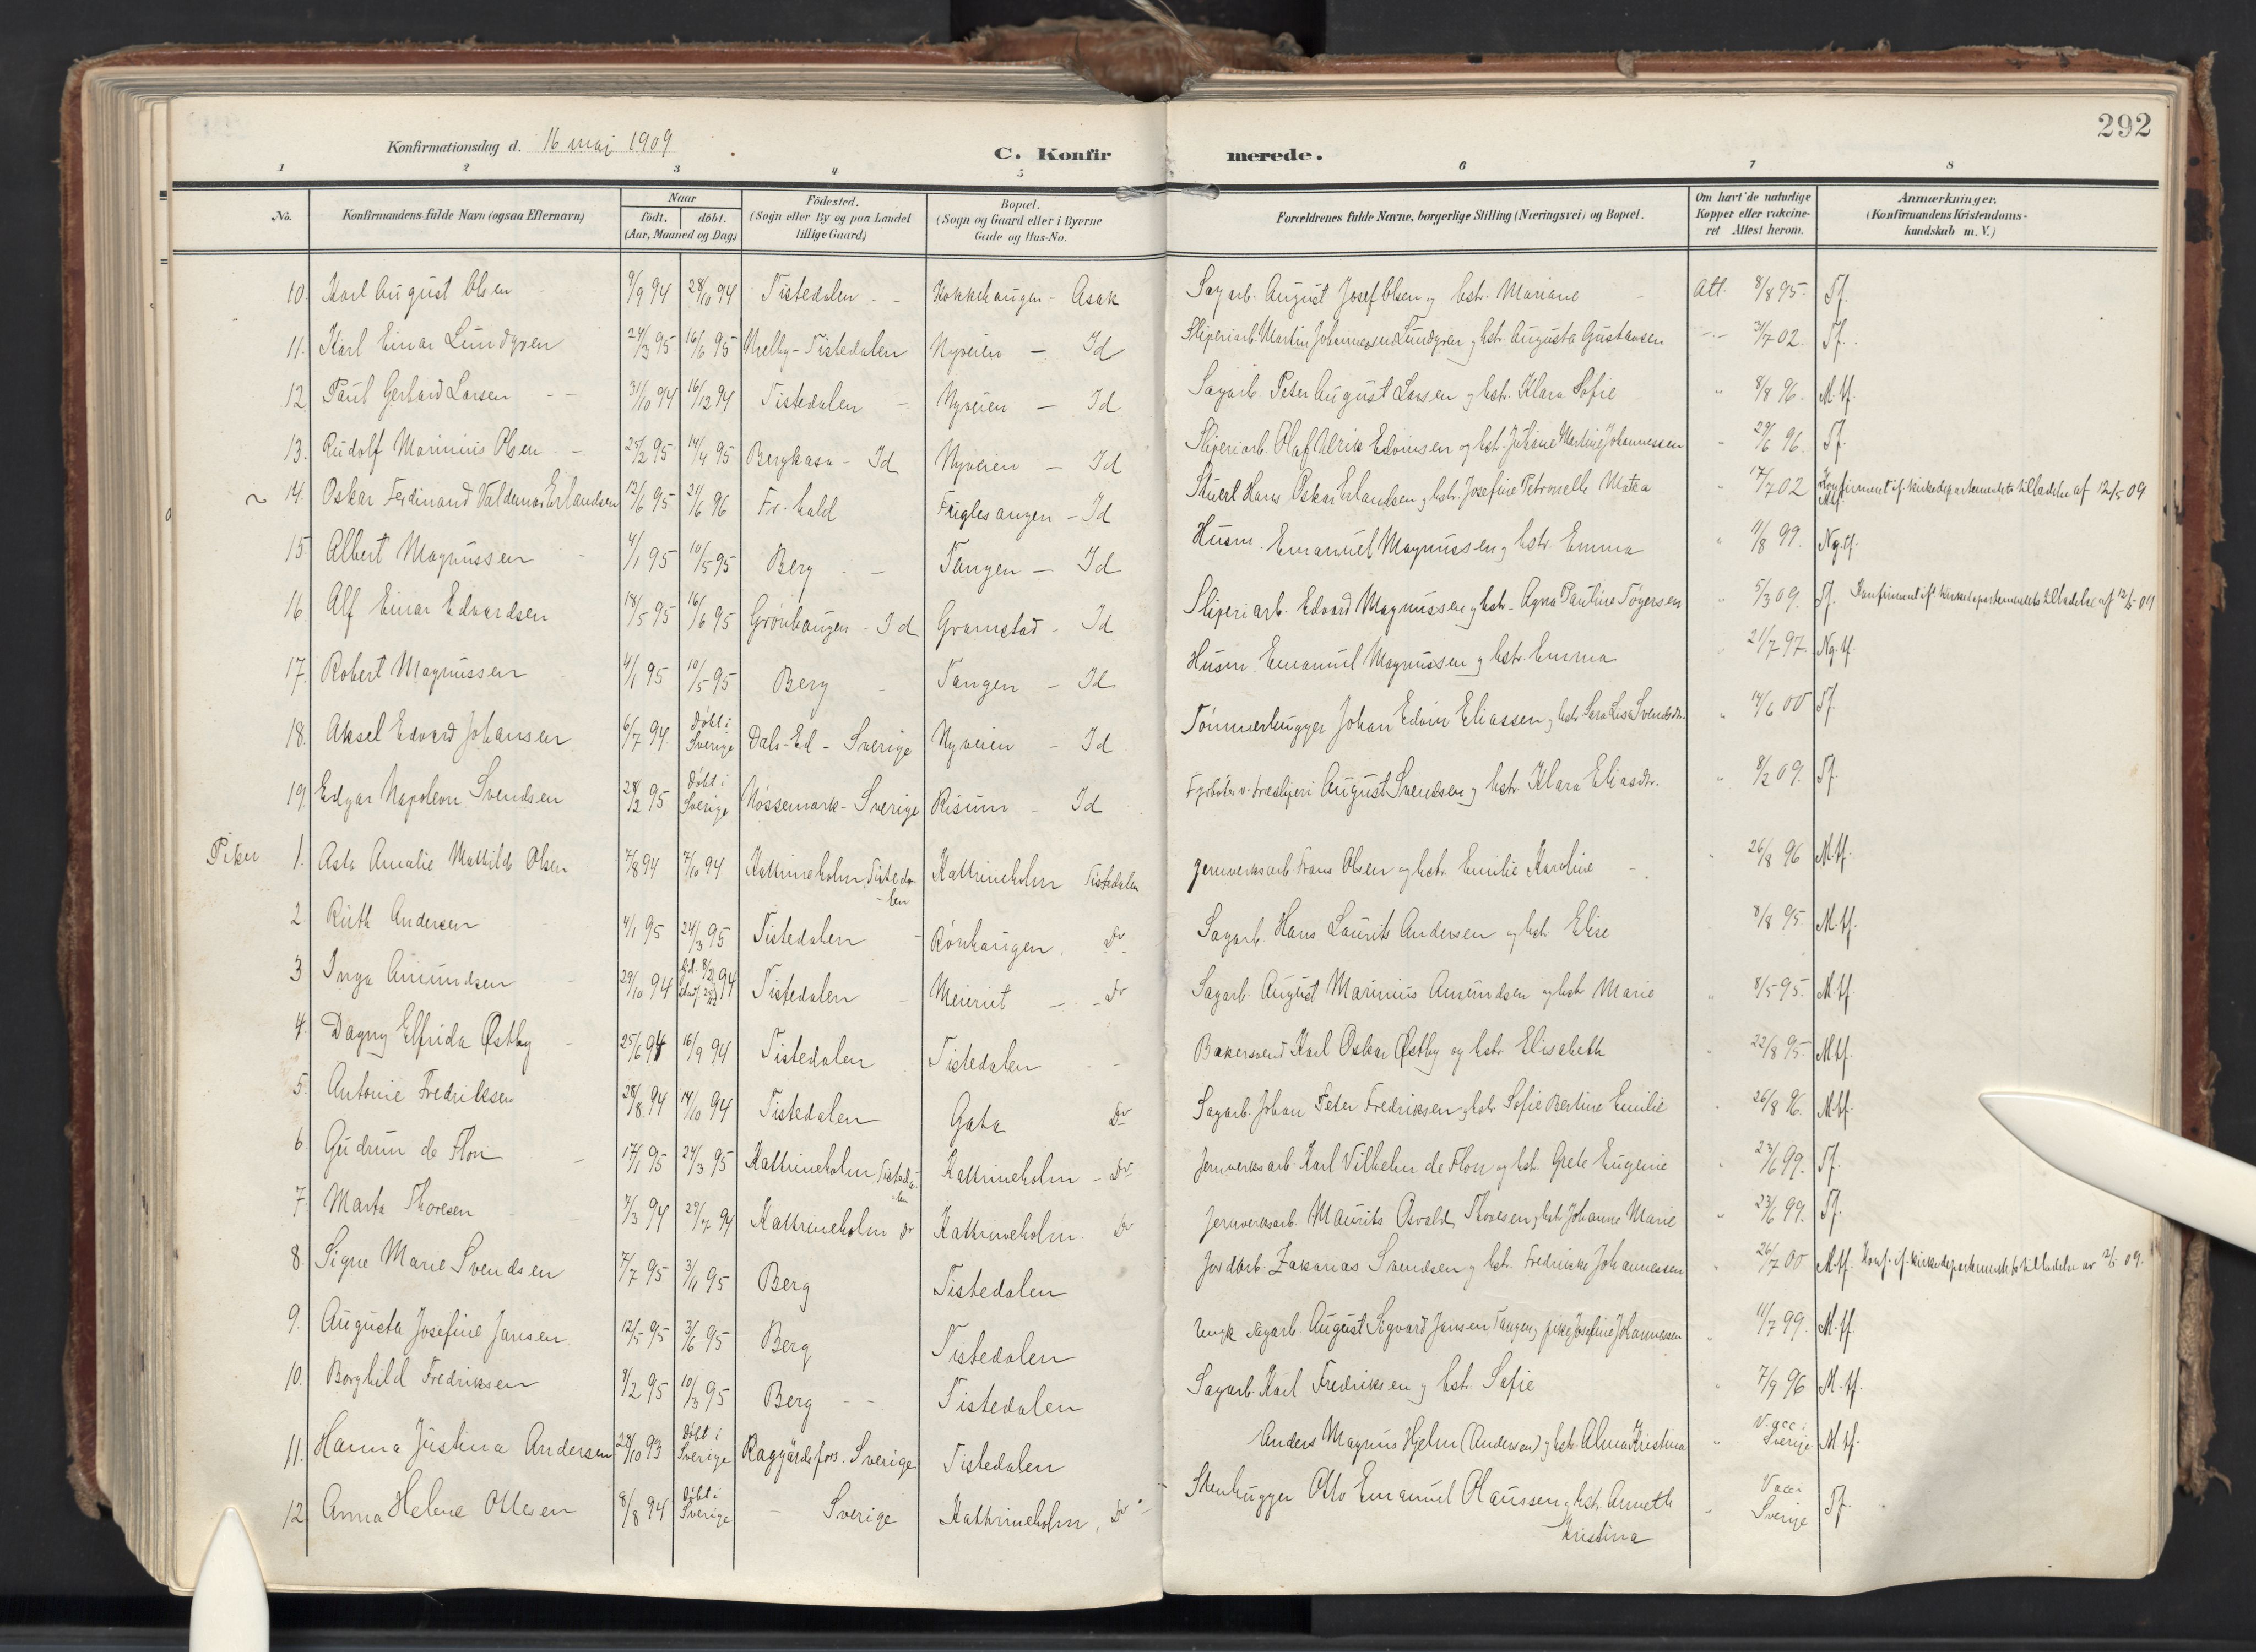 292
Konfirmationsdag d. 16 mai 1909
C. Konfirmerede.
1 2 3 4 5 6 7 8
No. Konfirmandens fulde Navn (ogsaa Efternavn) Naar födt. döbt. (Aar, Maaned og Dag) Födested. (Sogn eller By og paa Landet tillige Gaard) Bopæl. (Sogn og Gaard eller i Byerne Gade og Hus-No. Forældrenes fulde Navne, borgerlige Stilling (Næringsvei) og Bopæl. Om havt de naturlige Kopper eller vakcineret Attest herom. Anmærkninger. (Konfirmandens Kristendomskundskab m. V.)
10. Karl August Olsen 9/9 94 28/10 94 Tistedalen Kokkehaugen - Asak Sagarb. August Josef Olsen og hstr. Mariane Att. 8/8 95. Tf.
11. Karl Einar Lundgren 24/3 95 16/6 95 Melby - Tistedalen Nyveien - Id Sliperiarb. Martin Johannessen Lundgren og hstr. Augusta Gustavsen 31/7 02. Tf.
12. Paul Gerhard Larsen 31/10 94 16/12 94 Tistedalen Nyveien - Id Sagarb. Peter August Larsen og hstr. Klara Sofie " 8/8 96. M.tf.
13. Rudolf Marinius Olsen 25/2 95 14/4 95 Bergkasa - Id Nyveien - Id Sliperiarb. Olaf Alrik Edvinsen og hst. Juliane Martine Johannessen " 29/6 96. Tf.
14. Oskar Ferdinand Valdemar Erlandsen 12/6 95 21/6 96 Fr. hald Fuglesangen - Id Stuert Hans Oskar Erlandsen og hstr. Josefine Petronelle " 17/7 02 Konfirmert if. kirkedepartementets tilladelse af 12/5 09 M.tf.
15. Albert Magnussen 4/1 95 10/5 95 Berg Tangen - Id Husm. Emanuel Magnussen og hstr. Emma " 11/8 99. Ng.tf.
16. Alf Einar Edvardsen 18/5 95 16/6 95 Grönhaugen - Id Gramstad - Id Sliperiarb. Edvard Magnussen og hstr. Agna Pauline Togersen " 5/3 09. Tf. Konfirmeret if. kirkedepartementets tilladelse af 12/5 09
17. Robert Magnussen 4/1 95 10/5 95 Berg Tangen - Id Husm. Emanuel Magnussen og hstr. Emma 21/7 97. Ng.tf.
18. Aksel Edvard Johansen 6/7 94 Döbt i Sverige Dals-Ed - Sverige Nyveien - Id Tömmerhugger Johan Edvin Eliassen og hstr. Sara Lisa Svendsdtr. " 14/6 00 Tf.
19. Edgar Napoleon Svendsen 28/2 95 Döbt i Sverige Nössemark - Sverige Risum - Id Fyrböter v. træsliperi August Svendsen og hstr. Klara Eliasdtr. " 8/2 09. Tf.
Piker 1. Asta Amalie Mathilde Olsen 7/8 94 7/10 94 Kattrineholm, Tistedalen Kattrineholm Tistedalen Jernverksarb. Frans Olsen og hstr. Emilie Karoline 26/8 96 M.tf.
2. Ruth Andersen 4/1 95 24/3 95 Tistedalen Rönhaugen. Do Sagarb. Hans Laurits Andersen og hstr. Elise 8/8 95. M.tf.
3 Inga Amundsen 29/10 94 94 Tistedalen Meieriet - Do Sagarb. August Marinius Amundsen og hstr. Marie 8/5 95. M.tf.
4. Dagny Elfrida Østby 25/6 94 16/9 94 Tistedalen Tistedalen Bakersvend Karl Oskar Østby og hstr. Elisabeth 22/8 95. M.tf.
5. Antonie Fredriksen 28/8 94 14/10 94 Tistedalen Gata Do Sagarb. Johan Peter Fredriksen og hstr. Sofie Bertine Emilie 26/8 96. M.tf.
6 Gudrun de Flon 17/1 95 24/3 95 Kattrineholm, Tistedalen Kattrineholm - Do Jernverksarb. Karl Vilhelm de Flon og hst. Grete Eugenie 23/6 99. Tf.
7. Marta Thoresen 7/3 94 29/7 94 Kattrineholm Do Kattrineholm. Do Jernverksarb. Maurits Osvald Thoresen og hstr. Johanne Marie " 23/6 99. Tf.
8. Signe Marie Svendsen 7/7 95 3/11 95 Berg Tistedalen Jordarb. Zakarias Svendsen og hstr. Fredrikke Johannessen 26/7 00 M.tf. Konf. if. kirkedepartementets tilladelse av 09.
9. Augusta Josefine Jansen 12/5 95 3/6 95 Berg Tistedalen Ungk. sagarb. August Sigvard Jansen Tangen og pike Josefine Johannessen " 11/7 99. M.tf.
10. Borghild Fredriksen 9/2 95 10/3 95 Berg Tistedalen Sagarb. Karl Fredriksen og hstr. Sofie 7/9 96 M.tf.
11. Hanna Justina Andersen 28/10 93 Döbt i Sverige Raggärdsfors. Sverige Tistedalen Anders Magnus Hjelm (Andersen) og hstr. Alma Kristina " Vacc i Sverige M.tf.
12. Anna Helene Ottesen 8/8 94 Döbt i Sverige Sverige Kattrineholm, Do Stenhugger Otto Emanuel Olaussen og hstr. Anneth Kristina " Vacc i Sverige Tf.